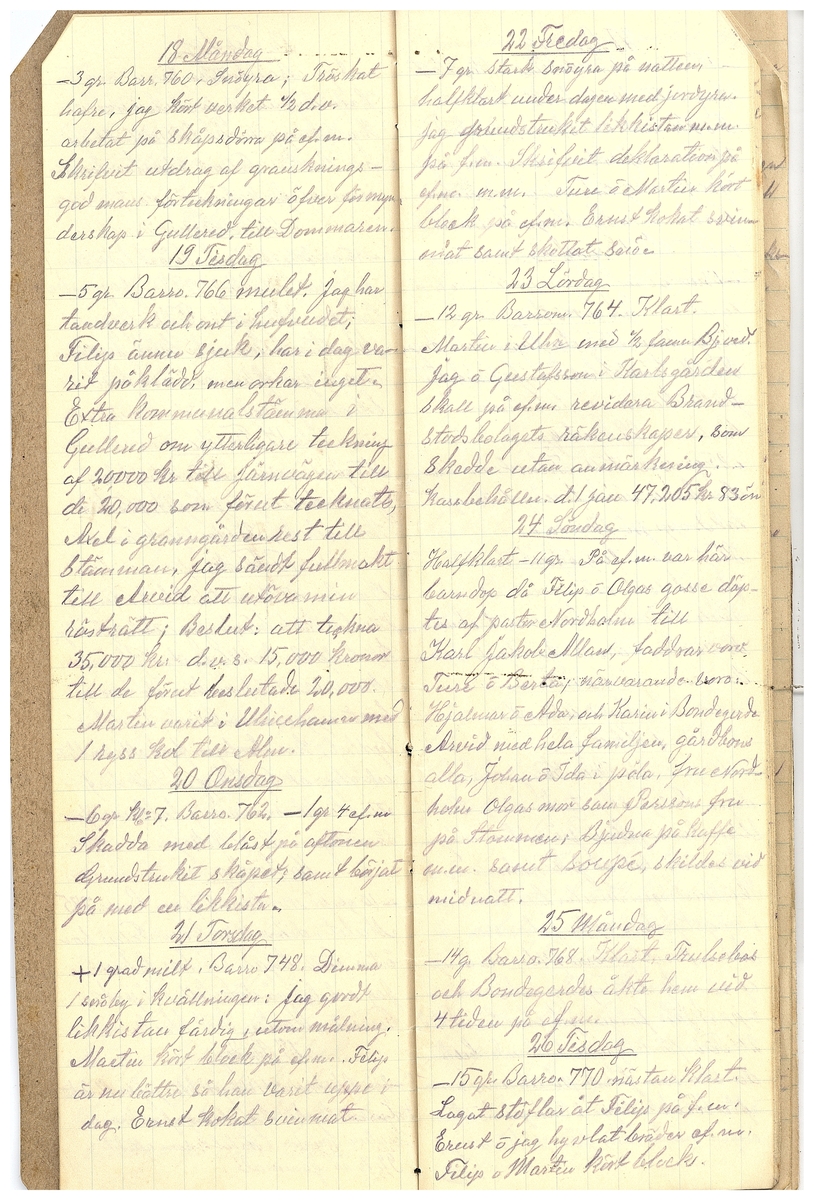 18 Måndag
—3 gr. Barr. 760, Snöyra; Tröskat
hafre, jag kört verket ½ d.v.
arbetat på skåpsdörra på ef.m.
Skrifvit utdrag af gransknings—
godmans förteckningar öfver förmyn
derskap i Gullered, till Dommaren.
19 Tisdag
—5 gr. Barro. 766 mulet. Jag har
tandverk och ont i hufvudet;
Filip ännu sjuk, har i dag va—
rit påklädd, men orkar inget.
Extra kommunalstämma i
Gullered om ytterligare teckning
af 20000 kr till Järnvägen till
de 20,000 som förut tecknats,
Axel i granngården rest till
Stämman, jag sändt fullmakt
till Arvid att utöva min
rösträtt; Beslut: att teckna
35,000 kr. d.v.s. 15,000 kronor
till de förut beslutade 20,000.
Martin varit i Ulricehamn med
1 ryss kol till Alm.
20 Onsdag
—6 gr kl. 7. Barro. 762. —1 gr 4 ef.m
Skadda med blåst på aftonen
Grundstrukit skåpet; samt börjat
på med en likkista.
21 Torsdag
+1 grad milt. Barro 748. Dimma
1 snöby i kvällningen: jag gjordt
likkistan färdig, utom målning.
Martin kört block på ef.m. Filip
är nu bättre så han varit uppe i
dag. Ernst kokat svinmat.
22 Fredag
—7 gr. stark snöyra på natten
halfklart under dagen med jordyra.
jag grundstrukit likkistan m.m.
på f.m. Skrifvit deklaration på
ef.m. m.m. Ture ō Martin kört
block på ef.m. Ernst kokat svin—
mat samt skottat snö.
23 Lördag
—12 gr. Barrom. 764. Klart.
Martin i Uhn med ½ famn Bj.ved.
Jag ō Gustafsson i Karlsgården
skall på ef.m. revidera Brand—
stodsbolagets räkenskaper, som
skedde utan anmärkning.
Kassbehålln. d. 1 jan 47,205 kr 83 ör
24 Söndag
Halfklart —11 gr. På ef.m. var här
barndop då Filip ō Olgas gosse döp—
tes af pastor Nordholm till
Karl Jakob Allan, faddrar voro.
Ture ō Berta, närvarande voro:
Hjalmar ō Ada, och Karin i Bondegerde
Arvid med hela familjen, gårdbons
alla, Johan ō Ida i pöla, fru Nord—
holm Olgas mor sam Perssons fru
på Stommen, Bjudna på kaffe
m.m. samt soupé, skildes vid
midnatt.
25 Måndag
—14 g. Barro. 768. Klart.
och Bondegerdes åkte hem vid
4 tiden på ef.m.
26 Tisdag
—15 gr. Barro. 770. nästan klart.
Lagat stöflar åt Filip på f.m.
Ernst ō jag hyvlat bräder ef.m.
Filip o Martin kört block.